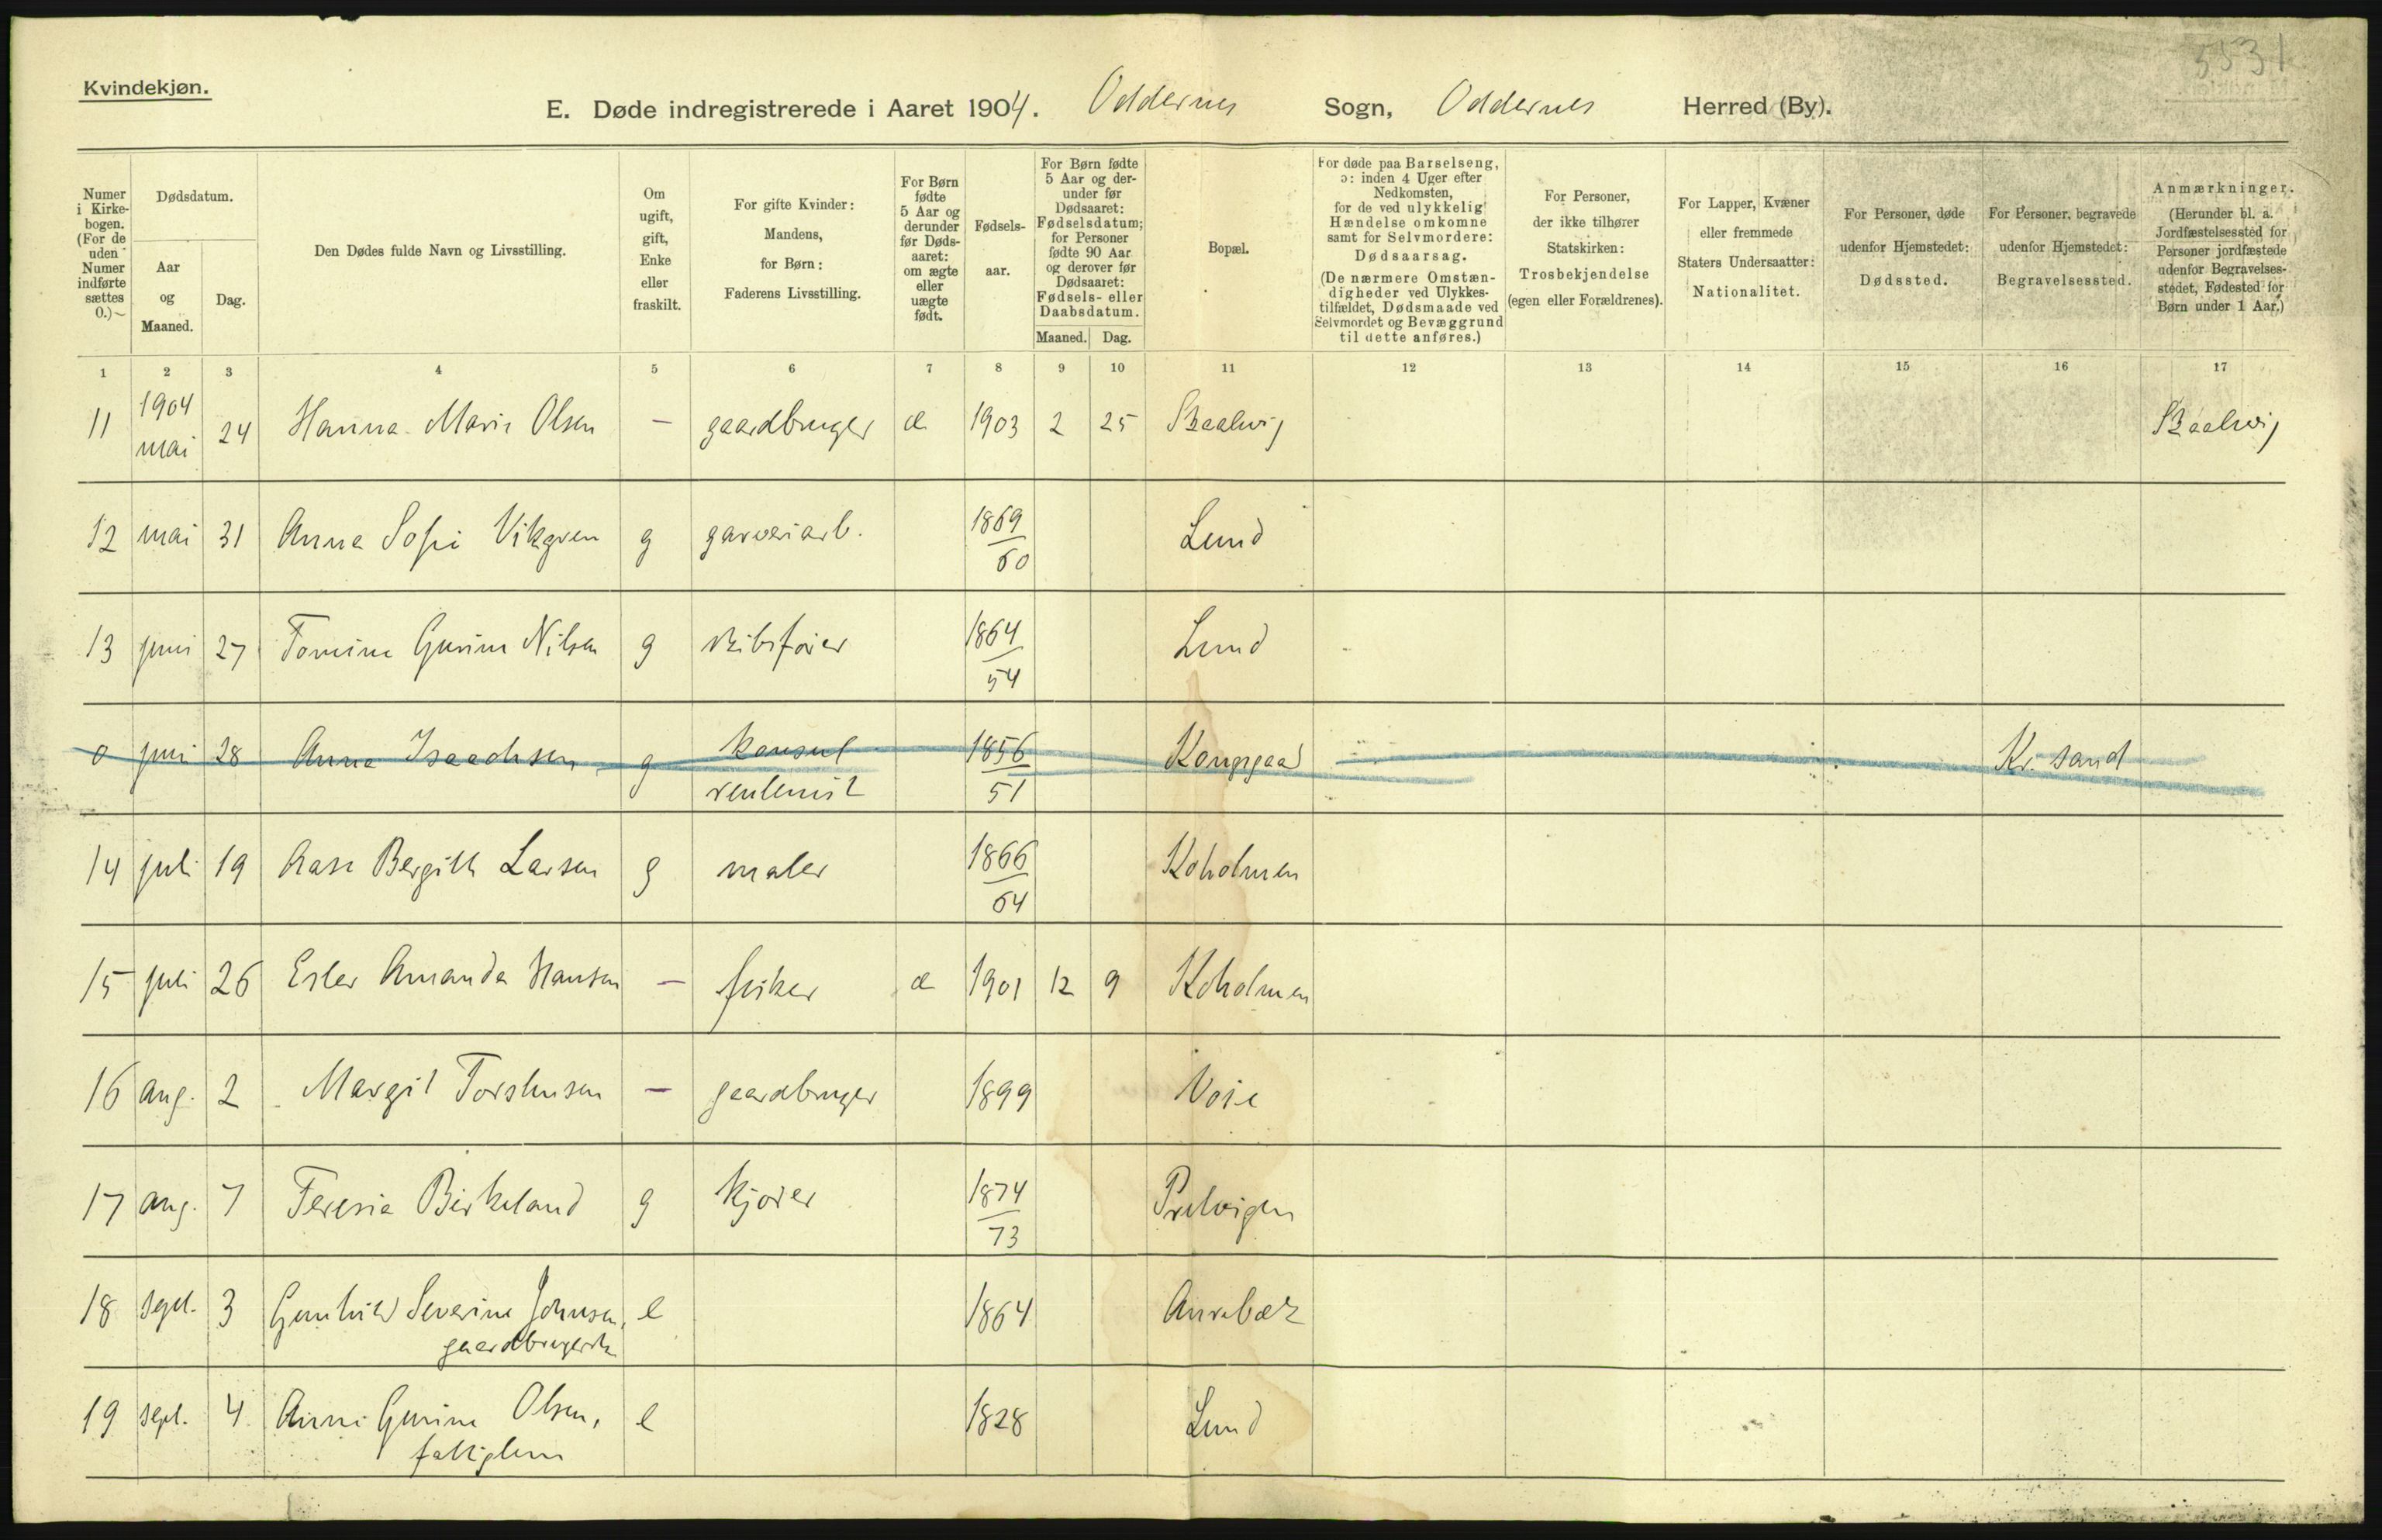 5531
Kvindekjøn.
E. Døde indregistrerede i Aaret 1904. Oddernes Sogn, Oddernes Herred (By).
Numer i Kirkebogen. (For de uden Numer indførte sættes 0.)
Dødsdatum.
Aar og Maaned.
Dag.
Den Dødes fulde Navn og Livsstilling.
Om ugift, gift, Enke eller fraskilt.
For gifte Kvinder: Mandens, for Børn: Faderens Livsstilling.
For Børn fødte 5 Aar og derunder før Dødsaaret: om ægte eller uægte født.
Fødselsaar.
For Børn fødte 5 Aar og derunder før Dødsaaret: Fødselsdatum; for Personer fødte 90 Aar og derover før Dødsaaret: Fødsels- eller Daabsdatum.
Maaned. Dag.
Bopæl.
For døde paa Barselseng, ɔ: inden 4 Uger efter Nedkomsten, for de ved ulykkelig Hændelse omkomne samt for Selvmordere: Dødsaarsag. (De nærmere Omstændigheder ved Ulykkestilfældet, Dødsmaade ved Selvmordet og Bevæggrund til dette anføres.)
For Personer, der ikke tilhører Statskirken: Trosbekjendelse (egen eller Forældrenes).
For Lapper, Kvæner eller fremmede Staters Undersaatter: Nationalitet.
For Personer, døde udenfor Hjemstedet: Dødssted.
For Personer, begravede udenfor Hjemstedet: Begravelsessted.
Anmærkninger. (Herunder bl. a. Jordfæstelsessted for Personer jordfæstede udenfor Begravelsesstedet, Fødested for Børn under 1 Aar.)
1 2 3 4 5 6 7 8 9 10 11 12 13 14 15 16 17
11 1904 mai 24 Hanna Marie Olsen — gaardbruger æ 1903 2 25 Skaalvig Skaalvig
12 mai 31 Anna Sofie Vikgren g garveriarb. 1869/60 Lund
13 juni 27 Tomine Gurine Nilsen g skibsfører 1864/54 Lund
0 juni 28 Anna Isaachsen g konsul rentenist 1856/51 Kongsgaard Kr.sand
14 juli 19 Aase Bergitte Larsen g maler 1866/64 Koholmen
15 juli 26 Ester Amanda Hansen — fisker æ 1901 12 9 Koholmen
16 aug. 2 Margit Torstensen — gaardbruger 1899 Voie
17 aug. 7 Teresia Birkeland g kjører 1874/73
18 sept. 3 Gunhild Severine Johnsen, gaardbrugerske e 1864
19 sept. 4 Anne Gurine Olsen, fattiglem e 1828 Lund